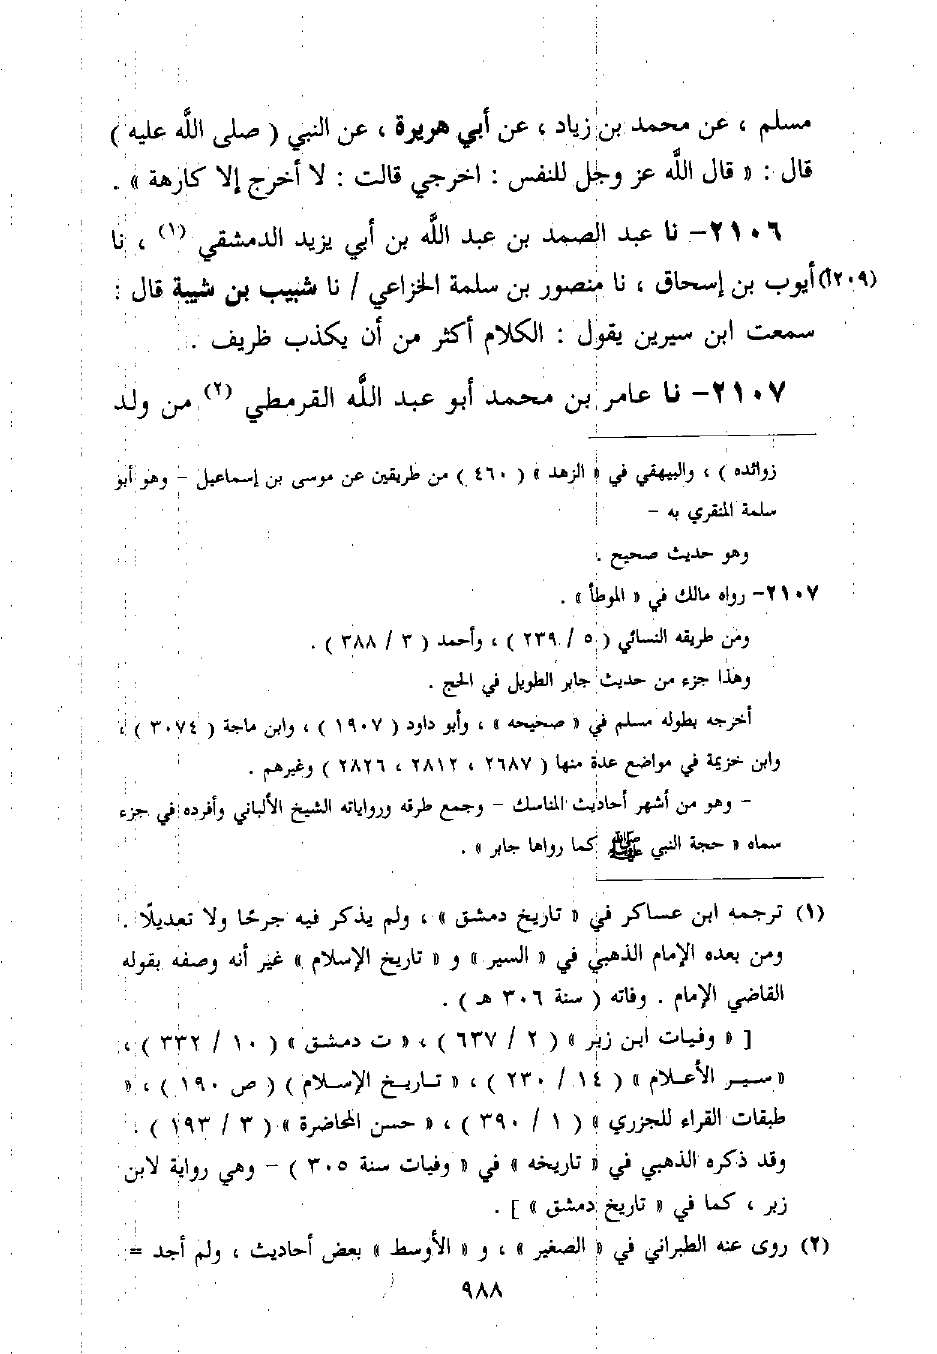 مسلم ، عن محمد بن زياد ، عن أبي هريرة ، عن النبي ( صلى اللَّه عليه )
قال : « قال اللَّه عز وجل للنفس : اخرجي قالت : لا أخرج إلا كارهة » .
٢١٠٦- نا عبد الصمد بن عبد اللَّه بن أبي يزيد الدمشقي (١) ، نا
(٢٠٩أ) أيوب بن إسحاق ، نا منصور بن سلمة الخزاعي / نا شبيب بن شيبة قال :
سمعت ابن سيرين يقول : الكلام أكثر من أن يكذب ظريف .
٢١٠٧- نا عامر بن محمد أبو عبد اللَّه القرمطي (٢) من ولد
زوائده ) ، والبيهقي في « الزهد » ( ٤٦٠ ) من طريقين عن موسى بن إسماعيل - وهو أبو
سلمة المنقري به -
وهو حديث صحيح .
٢١٠٧- رواه مالك في « الموطأ » .
ومن طريقه النسائي ( ٥ / ٢٣٩ ) ، وأحمد ( ٣ / ٣٨٨ ) .
وهذا جزء من حديث جابر الطويل في الحج .
أخرجه بطوله مسلم في « صحيحه » ، وأبو داود ( ١٩٠٧ ) ، وابن ماجة ( ٣٠٧٤ ) ،
وابن خزيمة في مواضع عدة منها ( ٢٦٨٧ ، ٢٨١٢ ، ٢٨٢٦ ) وغيرهم .
- وهو من أشهر أحاديث المناسك - وجمع طرقه ورواياته الشيخ الألباني وأفرده في جزء
سماه « حجة النبي ﷺ كما رواها جابر » .
(١) ترجمه ابن عساكر في « تاريخ دمشق » ، ولم يذكر فيه جرحًا ولا تعديلًا .
ومن بعده الإمام الذهبي في « السير » و « تاريخ الإسلام » غير أنه وصفه بقوله
القاضي الإمام . وفاته ( سنة ٣٠٦ هـ ) .
[ « وفيات ابن زبر » ( ٢ / ٦٣٧ ) ، « ت دمشق » ( ١٠ / ٣٣٢ ) ،
« سير الأعلام » ( ١٤ / ٢٣٠ ) ، « تاريخ الإسلام ) ( ص ١٩٠ ) ، «
طبقات القراء للجزري » ( ١ / ٣٩٠ ) ، « حسن المحاضرة » ( ٣ / ١٩٣ ) .
وقد ذكره الذهبي في « تاريخه » في « وفيات سنة ٣٠٥ ) - وهي رواية لابن
زبر ، كما في « تاريخ دمشق » ] .
(٢) روى عنه الطبراني في « الصغير » ، و « الأوسط » بعض أحاديث ، ولم أجد =
٩٨٨